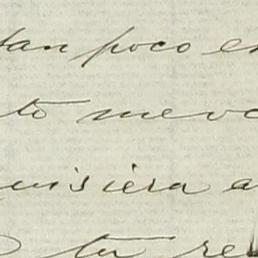 tan poco en
to merc
quisiera a
tu re